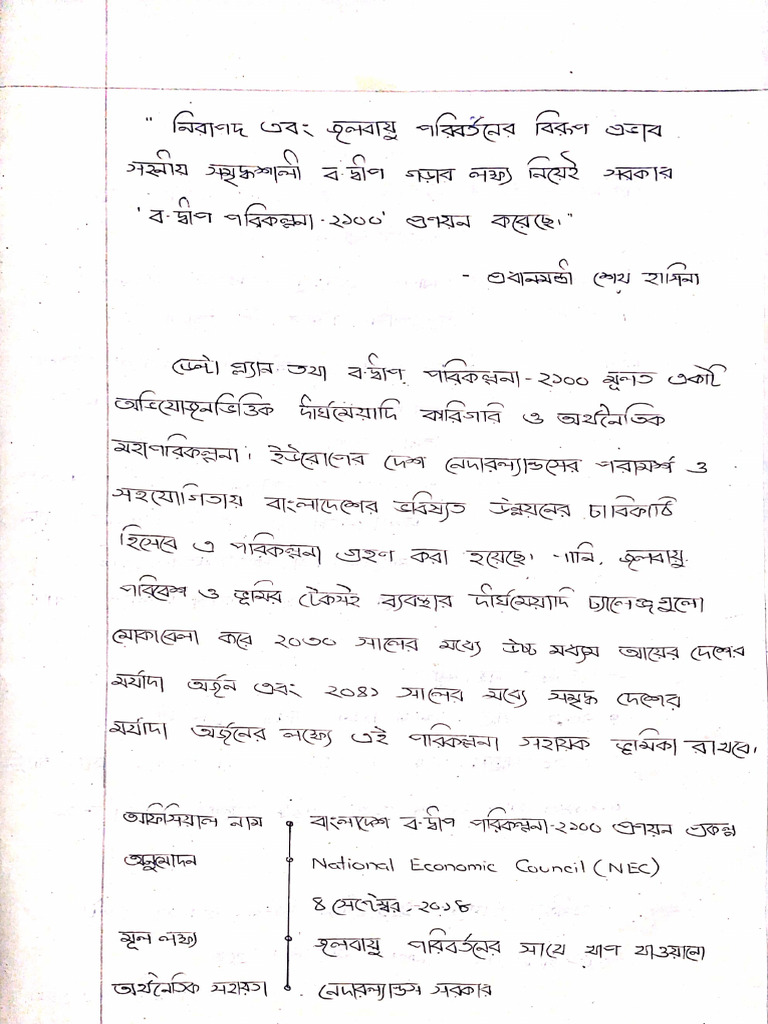 " নিরাপদ এবং জলবায়ু পরিবর্তনের বিরূপ প্রভাব
সহনীয় সমৃদ্ধশালী ব-দ্বীপ গড়ার লক্ষ্য নিয়েই সরকার
'ব-দ্বীপ পরিকল্পনা-২১০০' প্রণয়ন করেছে।"
- প্রধানমন্ত্রী শেখ হাসিনা
ডেল্টা প্ল্যান তথা ব-দ্বীপ পরিকল্পনা-২১০০ মূলত একটি
অভিযোজনভিত্তিক দীর্ঘমেয়াদি কারিগরি ও অর্থনৈতিক
মহাপরিকল্পনা। ইউরোপের দেশ নেদারল্যান্ডসের পরামর্শ ও
সহযোগিতায় বাংলাদেশের ভবিষ্যত উন্নয়নের চাবিকাঠি
হিসেবে এ পরিকল্পনা গ্রহণ করা হয়েছে। পানি, জলবায়ু,
পরিবেশ ও ভূমির টেকসই ব্যবস্থার দীর্ঘমেয়াদি চ্যালেঞ্জগুলো
মোকাবেলা করে ২০৩০ সালের মধ্যে উচ্চ মধ্যম আয়ের দেশের
মর্যাদা অর্জন এবং ২০৪১ সালের মধ্যে সমৃদ্ধ দেশের
মর্যাদা অর্জনের লক্ষ্যে এই পরিকল্পনা সহায়ক ভূমিকা রাখবে।
অফিসিয়াল নাম বাংলাদেশ ব-দ্বীপ পরিকল্পনা-২১০০ প্রণয়ন প্রকল্প
অনুমোদন National Economic Council (NEC)
৪ সেপ্টেম্বর, ২০১৮
মূল লক্ষ্য জলবায়ু পরিবর্তনের সাথে খাপ খাওয়ানো
অর্থনৈতিক সহায়তা নেদারল্যান্ডস সরকার